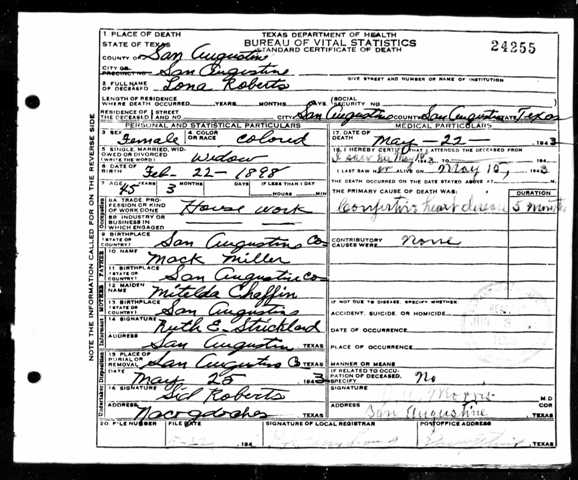 1 PLACE OF DEATH
STATE OF TEXAS
TEXAS DEPARTMENT OF HEALTH
BUREAU OF VITAL STATISTICS
STANDARD CERTIFICATE OF DEATH
24255
COUNTY OF San Augustine
CITY OR PRECINCT NO. San Augustine
GIVE STREET AND NUMBER OR NAME OF INSTITUTION
2 FULL NAME OF DECEASED Lona Roberts
LENGTH OF RESIDENCE WHERE DEATH OCCURRED YEARS MONTHS DAYS
SOCIAL SECURITY NO.
RESIDENCE OF THE DECEASED STREET AND NO. CITY San Augustine COUNTY San Augustine STATE Texas
PERSONAL AND STATISTICAL PARTICULARS
3 SEX Female
4 COLOR OR RACE Colored
5 SINGLE, MARRIED, WIDOWED OR DIVORCED (WRITE THE WORD) Widow
6 DATE OF BIRTH Feb- 22-1898
7 AGE 45 YEARS 3 MONTHS DAYS IF LESS THAN 1 DAY HOURS MIN
8A TRADE, PROFESSION OR KIND OF WORK DONE House work
8B INDUSTRY OR BUSINESS IN WHICH ENGAGED
9 BIRTHPLACE (STATE OR COUNTRY) San Augustine Co
10 NAME Mack Miller
11 BIRTHPLACE (STATE OR COUNTRY) San Augustine co
12 MAIDEN NAME Mitilda Chaffin
13 BIRTHPLACE (STATE OR COUNTRY) San Augustine
14 SIGNATURE Ruth E. Strickland
ADDRESS San Augustin TEXAS
15 PLACE OF BURIAL OR REMOVAL San Augustine Co TEXAS
DATE May 25 1943
16 SIGNATURE Sid Roberts
ADDRESS Nacogdoches TEXAS
MEDICAL PARTICULARS
17 DATE OF DEATH May-22 1943
18 I HEREBY CERTIFY THAT I ATTENDED THE DECEASED FROM
194 TO 194
I LAST SAW H ALIVE ON May 15, 1943
THE DEATH OCCURRED ON THE DATE STATED ABOVE AT M.
THE PRIMARY CAUSE OF DEATH WAS:
DURATION
heart disease 5 months
CONTRIBUTORY CAUSES WERE None
IF NOT DUE TO DISEASE, SPECIFY WHETHER:
ACCIDENT, SUICIDE OR HOMICIDE
DATE OF OCCURRENCE
PLACE OF OCCURRENCE
MANNER OR MEANS
IF RELATED TO OCCUPATION OF DECEASED, SPECIFY No
SIGNATURE M D
COR
ADDRESS San Augustine TEXAS
20 FILE NUMBER FILE DATE 194
SIGNATURE OF LOCAL REGISTRAR
POSTOFFICE ADDRESS
TEXAS
NOTE THE INFORMATION CALLED FOR ON THE REVERSE SIDE
Occupation
FATHER
MOTHER
Informant
Disposition
Undertaker